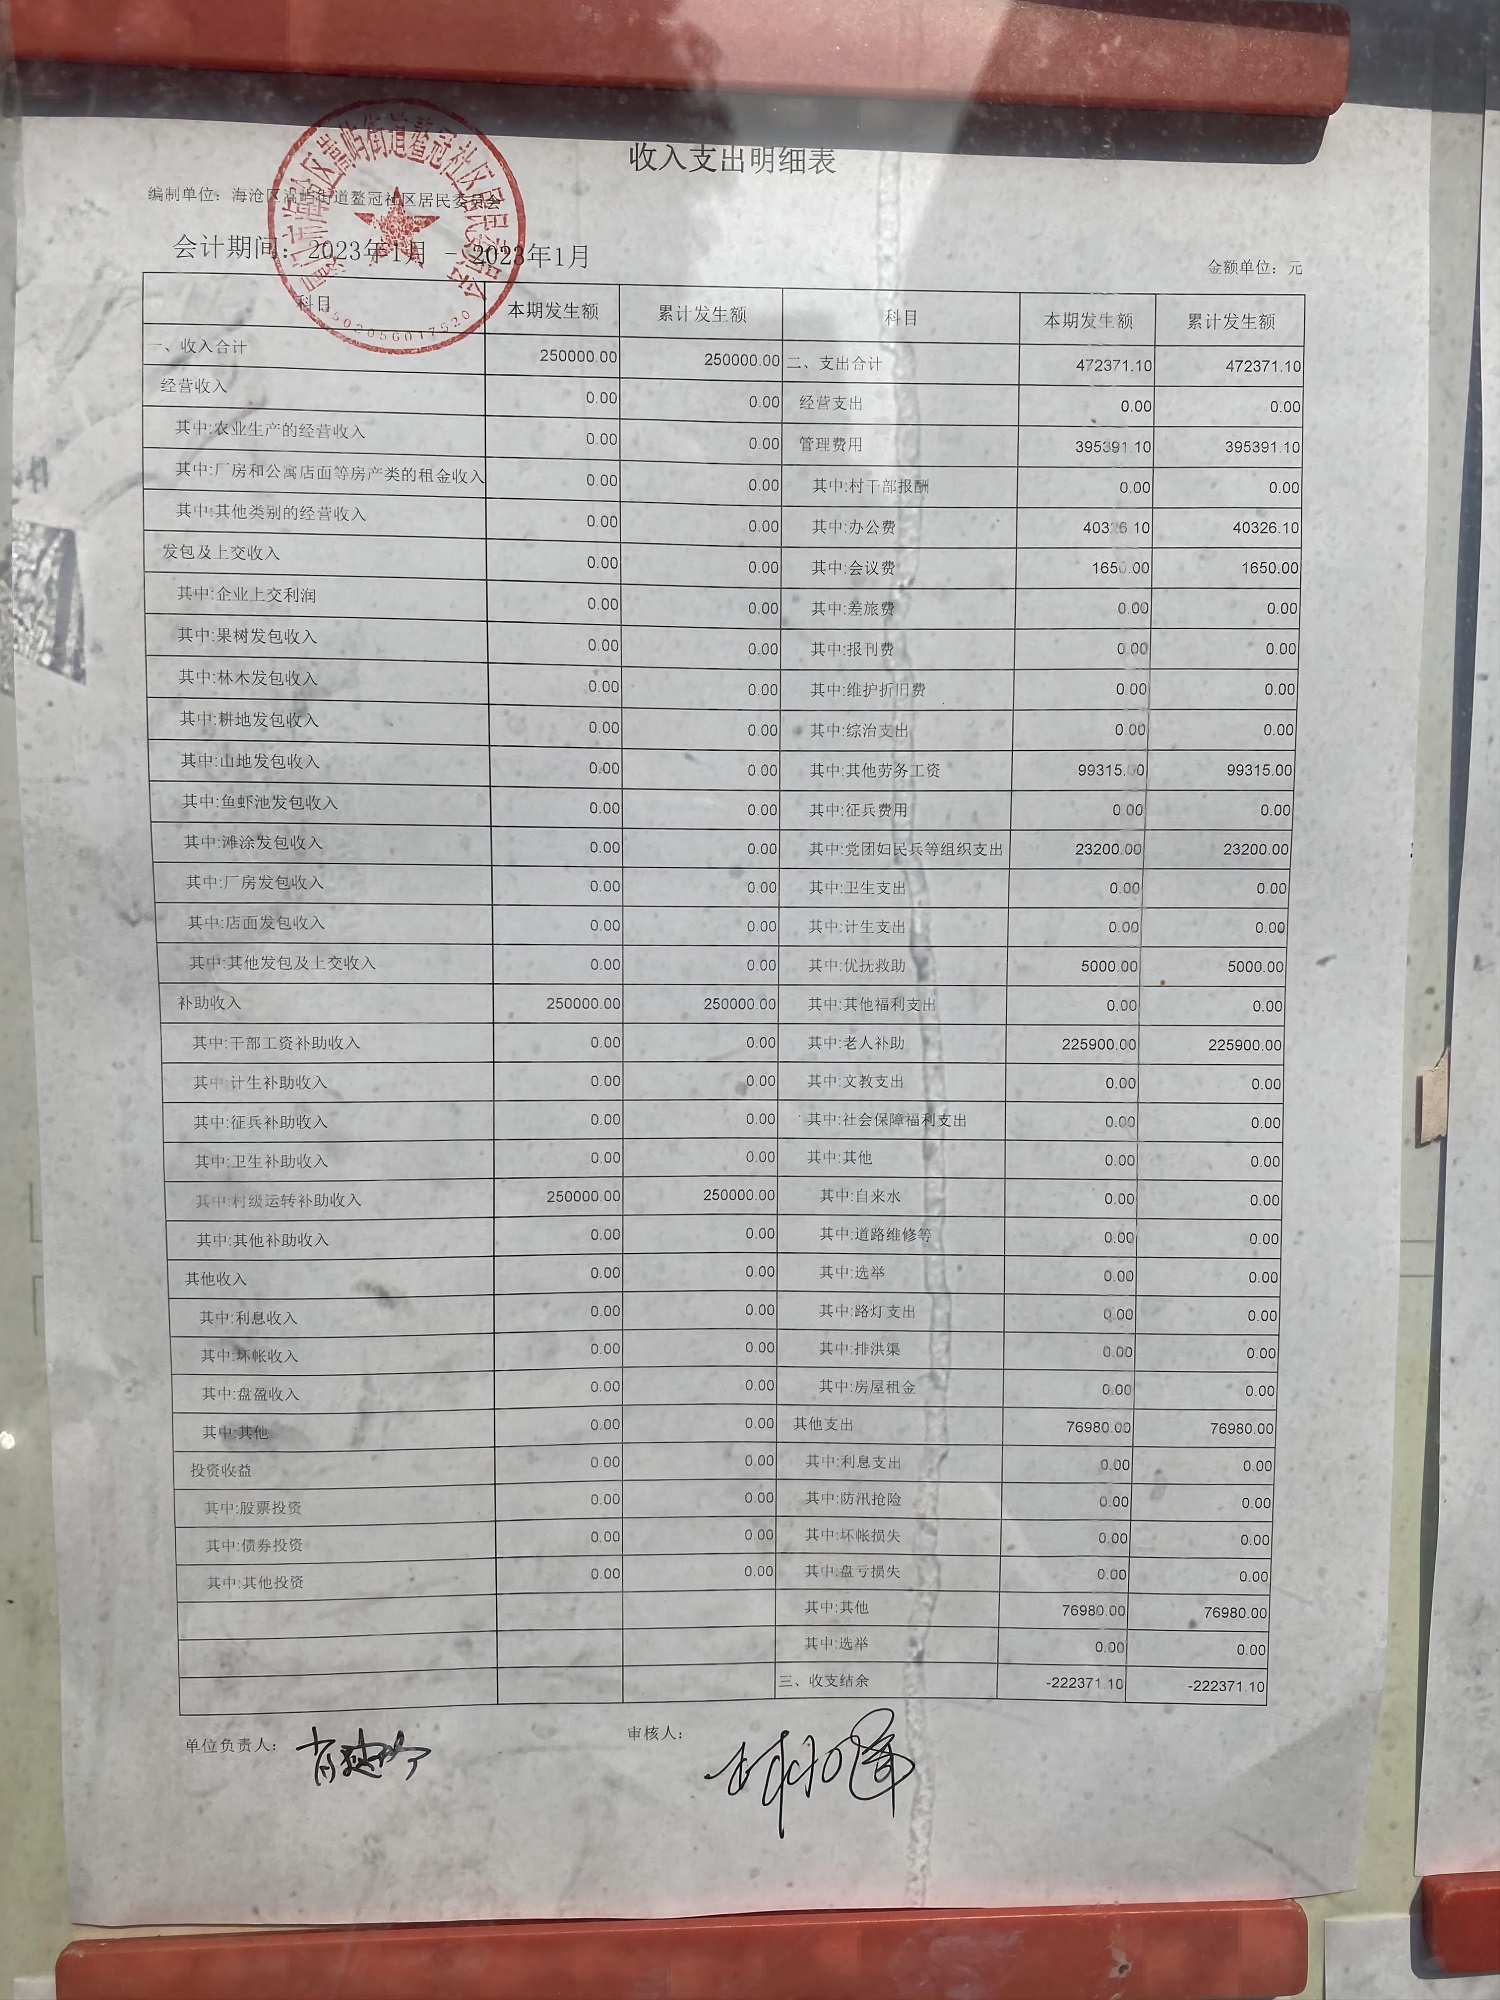 收入支出明细表
编制单位：海沧区嵩屿街道鳌冠社区居民委员会
会计期间：2023年1月 - 2023年1月
金额单位：元
科目 本期发生额 累计发生额 科目 本期发生额 累计发生额
一、收入合计 250000.00 250000.00 二、支出合计 472371.10 472371.10
经营收入 0.00 0.00 经营支出 0.00 0.00
其中:农业生产的经营收入 0.00 0.00 管理费用 395391.10 395391.10
其中:厂房和公寓店面等房产类的租金收入 0.00 0.00 其中:村干部报酬 0.00 0.00
其中:其他类别的经营收入 0.00 0.00 其中:办公费 40326.10 40326.10
发包及上交收入 0.00 0.00 其中:会议费 1650.00 1650.00
其中:企业上交利润 0.00 0.00 其中:差旅费 0.00 0.00
其中:果树发包收入 0.00 0.00 其中:报刊费 0.00 0.00
其中:林木发包收入 0.00 0.00 其中:维护折旧费 0.00 0.00
其中:耕地发包收入 0.00 0.00 其中:综治支出 0.00 0.00
其中:山地发包收入 0.00 0.00 其中:其他劳务工资 99315.00 99315.00
其中:鱼虾池发包收入 0.00 0.00 其中:征兵费用 0.00 0.00
其中:滩涂发包收入 0.00 0.00 其中:党团妇民兵等组织支出 23200.00 23200.00
其中:厂房发包收入 0.00 0.00 其中:卫生支出 0.00 0.00
其中:店面发包收入 0.00 0.00 其中:计生支出 0.00 0.00
其中:其他发包及上交收入 0.00 0.00 其中:优抚救助 5000.00 5000.00
补助收入 250000.00 250000.00 其中:其他福利支出 0.00 0.00
其中:干部工资补助收入 0.00 0.00 其中:老人补助 225900.00 225900.00
其中:计生补助收入 0.00 0.00 其中:文教支出 0.00 0.00
其中:征兵补助收入 0.00 0.00 其中:社会保障福利支出 0.00 0.00
其中:卫生补助收入 0.00 0.00 其中:其他 0.00 0.00
其中:村级运转补助收入 250000.00 250000.00 其中:自来水 0.00 0.00
其中:其他补助收入 0.00 0.00 其中:道路维修等 0.00 0.00
其他收入 0.00 0.00 其中:选举 0.00 0.00
其中:利息收入 0.00 0.00 其中:路灯支出 0.00 0.00
其中:坏帐收入 0.00 0.00 其中:排洪渠 0.00 0.00
其中:盘盈收入 0.00 0.00 其中:房屋租金 0.00 0.00
其中:其他 0.00 0.00 其他支出 76980.00 76980.00
投资收益 0.00 0.00 其中:利息支出 0.00 0.00
其中:股票投资 0.00 0.00 其中:防汛抢险 0.00 0.00
其中:债券投资 0.00 0.00 其中:坏帐损失 0.00 0.00
其中:其他投资 0.00 0.00 其中:盘亏损失 0.00 0.00
其中:其他 76980.00 76980.00
其中:选举 0.00 0.00
三、收支结余 -222371.10 -222371.10
单位负责人： 审核人：